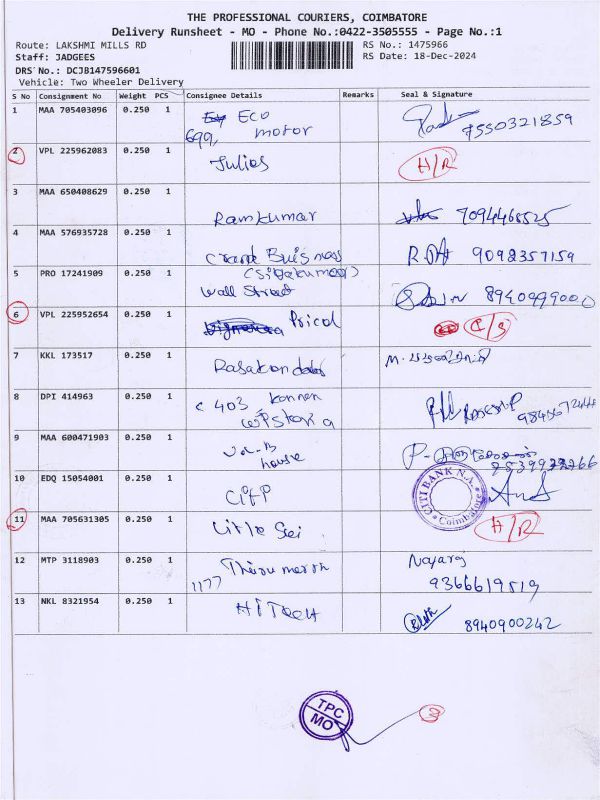 THE PROFESSIONAL COURIERS, COIMBATORE
Delivery Runsheet - MO - Phone No.:0422-3505555 - Page No.:1
Route: LAKSHMI MILLS RD RS No.: 1475966
Staff: JADGEES RS Date: 18-Dec-2024
DRS No.: DCJB147596601
Vehicle: Two Wheeler Delivery
S No Consignment No Weight PCS Consignee Details Remarks Seal & Signature
1 MAA 705403096 0.250 1 Eco
699, motor 7550321859
2 VPL 225962083 0.250 1 Julios H/R
3 MAA 650408629 0.250 1
Ramkumar 7094468525
4 MAA 576935728 0.250 1
9098357159
5 PRO 17241909 0.250 1
Wall Street
6 VPL 225952654 0.250 1 Pricol
7 KKL 173517 0.250 1
8 DPI 414963 0.250 1 C 403
9 MAA 600471903 0.250 1
house
10 EDQ 15054001 0.250 1 CITI BANK N.A.
Coimbatore
11 MAA 705631305 0.250 1 H/R
12 MTP 3118903 0.250 1 Nagaraj
1177 9366619519
13 NKL 8321954 0.250 1 HiTech
8940900242
TPC
MO
3